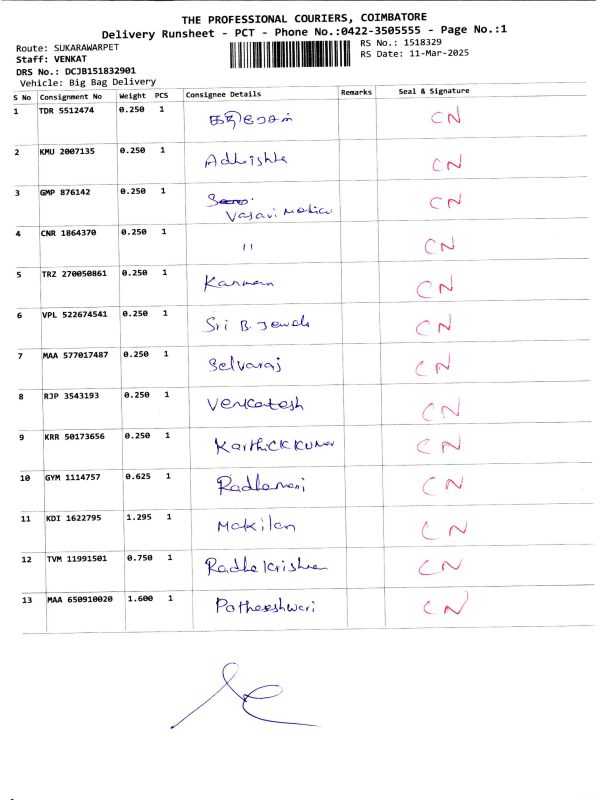 THE PROFESSIONAL COURIERS, COIMBATORE
Delivery Runsheet - PCT - Phone No.:0422-3505555 - Page No.:1
Route: SUKARAWARPET
RS No.: 1518329
Staff: VENKAT
RS Date: 11-Mar-2025
DRS No.: DCJB151832901
Vehicle: Big Bag Delivery
S No Consignment No Weight PCS Consignee Details Remarks Seal & Signature
1 TDR 5512474 0.250 1 கதிரேசன் CN
2 KMU 2007135 0.250 1 Adhishta CN
3 GMP 876142 0.250 1 CN
Vasavi
4 CNR 1864370 0.250 1 11 CN
5 TRZ 270050861 0.250 1 Kannan CN
6 VPL 522674541 0.250 1 Sri B. Jewels CN
7 MAA 577017487 0.250 1 Selvaraj CN
8 RJP 3543193 0.250 1 Venkatesh CN
9 KRR 50173656 0.250 1 Karthickkumar CN
10 GYM 1114757 0.625 1 Radhamani CN
11 KDI 1622795 1.295 1 Makilan CN
12 TVM 11991501 0.750 1 Radhakrishna CN
13 MAA 650910020 1.600 1 Patheeshwari CN